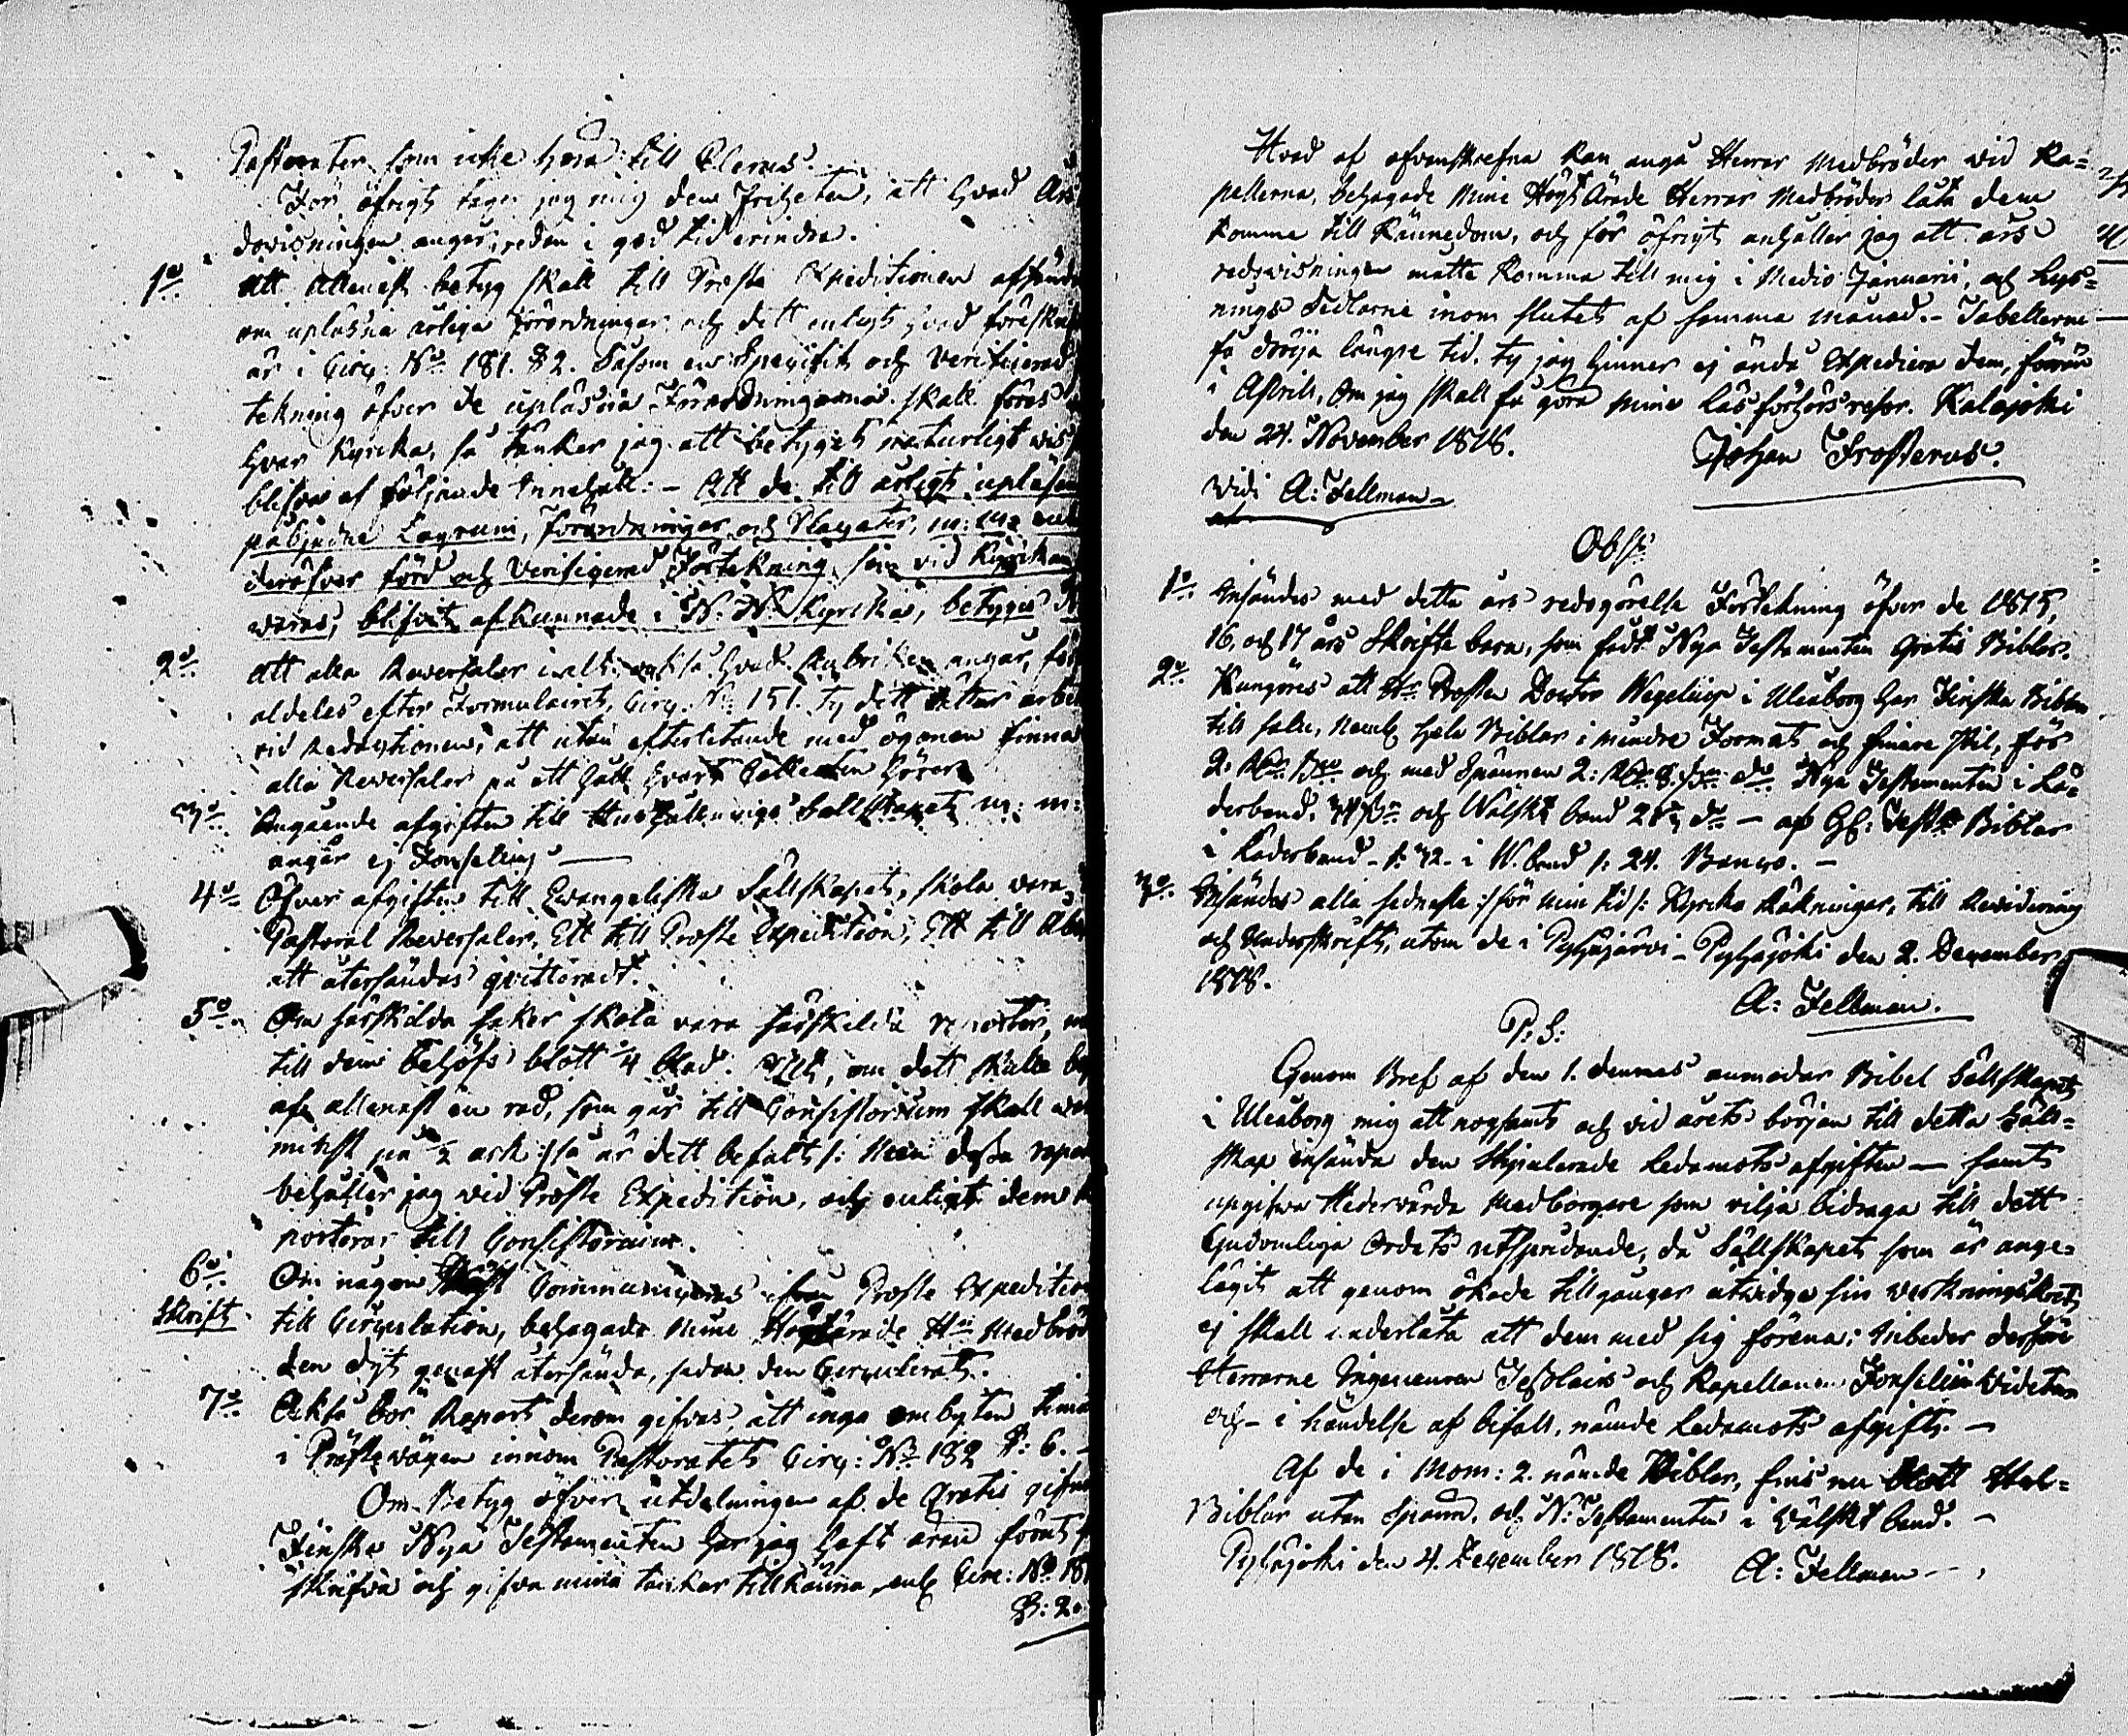 Pastorater som icke höra till Clerus.
För öfrigt tager jag mig den friheten, att hvad Års
dovisningen angår, reden i god tid erindra.
1o Att allenast betyg skall till Proste Expeditionen afsändas
om uplåsna årliga förordningar och dett enligt hvad föreskrif
är i Circ: No 181. § 2. Såsom en Specifik och verificerad
tekning öfver de uplåsna Förordningarna skall föras
hvar Kyrcka, så tänker jag att betyget naturligt vis
blifver af följande Innehåll: - Att de till årligt upläsande
påbjudne Lagrum, förordningar och Placater, m: m:
deröfver förd och Verificerad Förtekning, som vid Kyrckan
varas, blifvit afkunnade i N. N. Kyrcka, betygar
2o Att alla Reversaler i allt, också hvad Rubriken angår,
aldeles efter Formulairet, Circ. No 151. ty dett lättar arbet
vid Redactionen, att utan efterletande med ögonen finna
alla Reversaler på ett håll hvart Collecten hörer
3o Angående afgiften till Hushållnings Sällskapet m: m:
angår ej Fonselius
4o Öfver afgiften till Evangeliska Sällskapet, skola vara
Pastoral Reversaler, Ett till Proste Expedition, Ett till Åbo
att återsändas qvitteradt.
5o Om särskilda saker skola vara särskilda reporter,
till dem behöfs blott 1/4 blad. Allt, om dett skulle be
af allenast en rad, som går till Consistorium skall
minst på 1/2 ark :/så är dett befalt/: Men dessa rapor
behåller jag vid Proste Expedition, och enligt dem
porterar till Consistorium.
6o Om någon Communiceras ifrån Proste Expedition
Skrift. till Circulation, behagade Mine Högtärade Hrr Medbröder
den dyt genast återsända, sedan den Circulerat.
7o Också bör Raport derom gifvas, att inga ombyten timat
i Prästevägen innom Pastoratet Circ: No 182 §: 6. -
Om Betyg öfver utdelningen af de Gratis gifna
Finska Nya Testamenten har jag haft äran förut
skrifva och gifva mina tankar tillkänna, enl Circ: No 18
§: 2.
Hvad af ofvanskrefna kan angå Herrar Medbröder vid Ka=
pellerna, behagade Mine HögtÄrade Herrar Medbröder låta dem
komma till kännedom, och för öfrigt anhåller jag att års
redovisningen måtte komma till mig i Medio Januarii, och Lys=
nings Sedlarne inom slutet af samma månad. - Tabellerne
få dröja längre tid. ty jag hinner ej ändå Expediera dem, förrän
i April, Om jag skall få göra mine läsförhörsresor. Kalajoki
den 24. November 1818.
Johan Frosterus.
Vidi A: Fellman
Obs:
1o Insändes med detta års redogörelse Förtekning öfver de 1815,
16, och 17 års Skrifte barn, som fådt Nya Testamenten Gratis Biblar.
2o Kungöres att Hr Prosten Doctor Wegelius i Uleåborg har Finska Biblar
till salu, neml hela Biblar i mindre Format och finare stil, för
2. och med Spännen 2: Nya Testamenten i Lä=
derband, och Wälskt band - af
i Läderband - 1: 72. i W. band 1. 24. Banco. -
3o Insändas alla sednaste :/för min tid/: Kyrcko Räkningar, till Reviderning
och Underskrift, utom de i Pyhäjärvi - Pyhäjoki den 2. December
1818.
A: Fellman.
P: S:
Genom Bref af den 1. dennes anmodar Bibel Sällskapet
i Uleåborg mig att nogsamt och vid årets början till detta Säll=
skap insända den Stipulerade Ledamots afgiften - samt
upgifva Hedervärda Medborgare som vilja bidraga till dett
Gudomliga Ordets utspridande, då Sällskapet som är ange=
läget att genom ökade tillgångar utvidga sin verkningskrets
ej skall underlåta att dem med sig förena; Inbeder derföre
Herrarne Ingenieuren och Kapellanen Fonselius
och - i händelse af bifall, nämde Ledamots afgift. -
Af de i Mom: 2. nämde Biblar, fins nu blott Hel=
Biblar utan Spänn. och N: Testamenten i Wälskt band. -
Pyhäjoki den 4. December 1818. A: Fellman